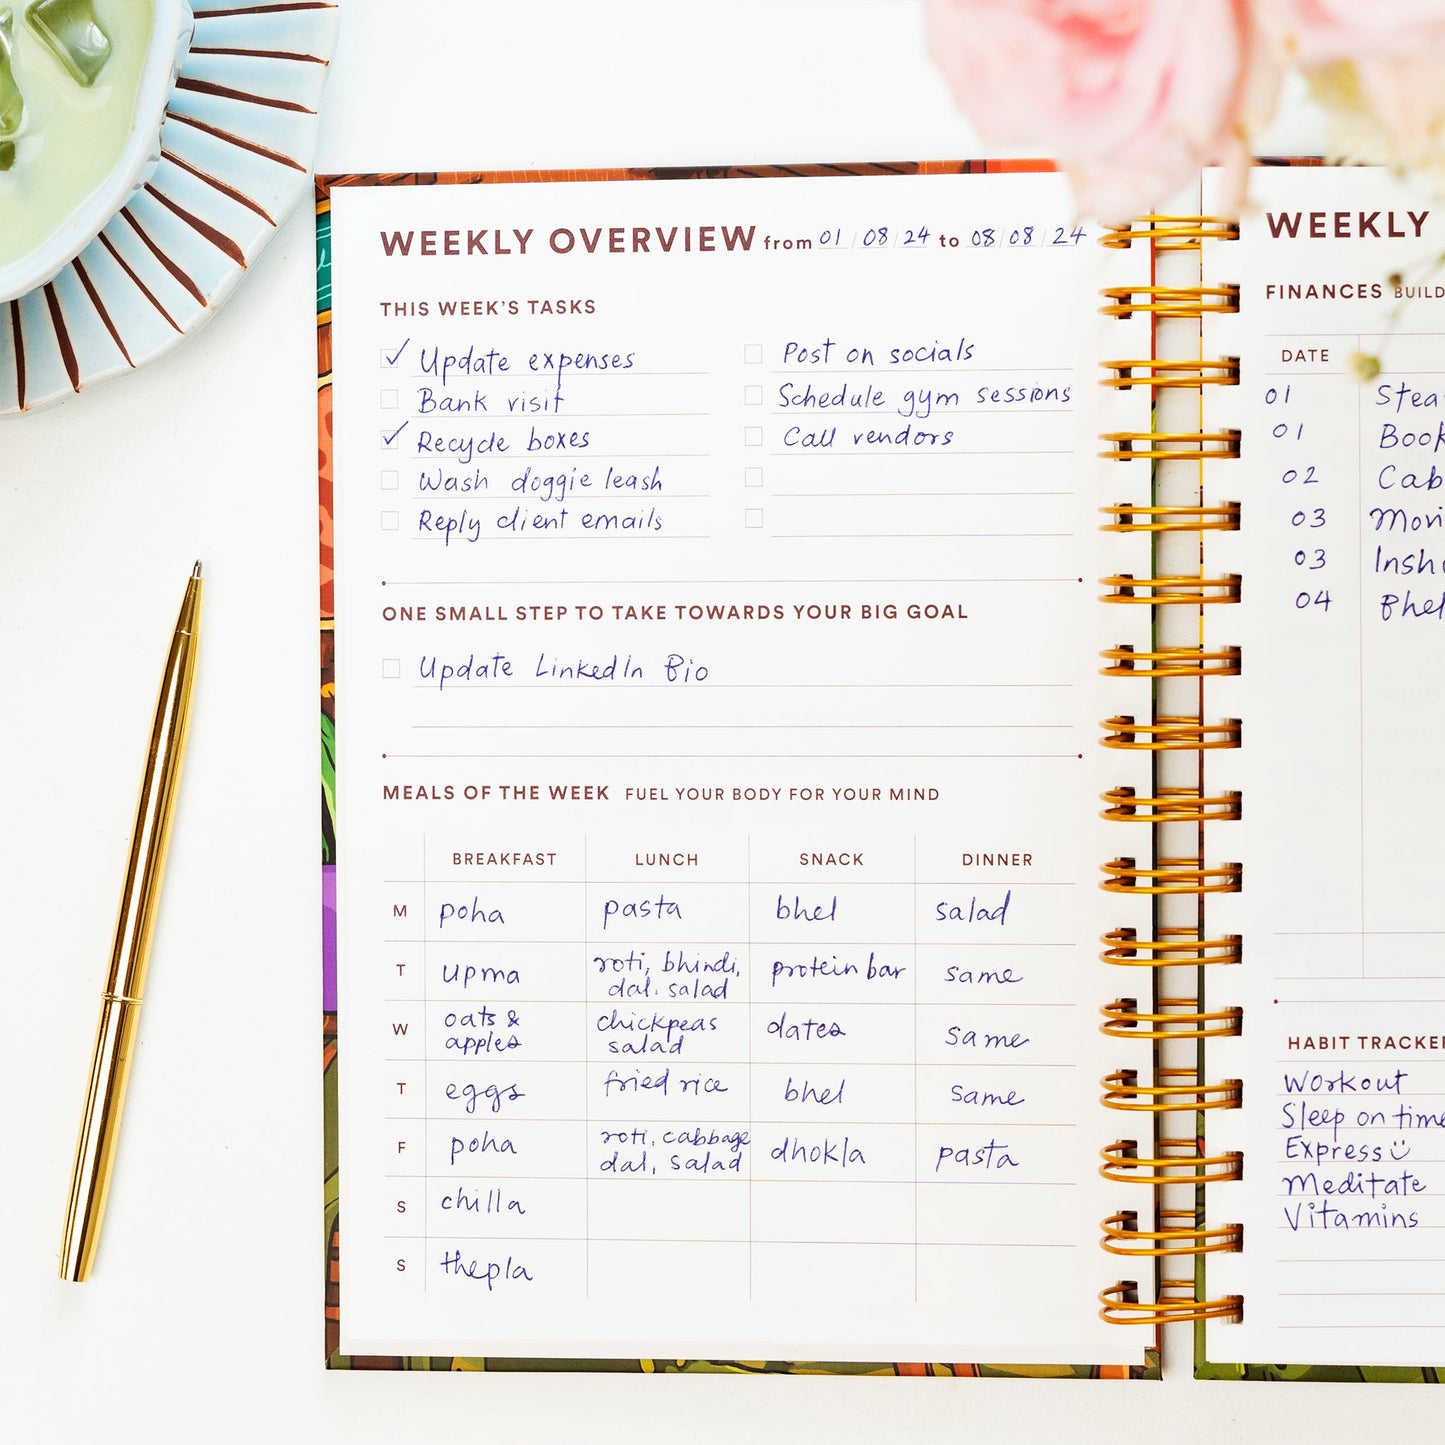 WEEKLY OVERVIEW from 01/08/24 to 08/08/24
THIS WEEK'S TASKS
Update expenses
Bank visit
Recycle boxes
Wash doggie leash
Reply client emails
Post on socials
Schedule gym sessions
Call vendors
ONE SMALL STEP TO TAKE TOWARDS YOUR BIG GOAL
Update LinkedIn Bio
MEALS OF THE WEEK FUEL YOUR BODY FOR YOUR MIND
BREAKFAST LUNCH SNACK DINNER
M poha pasta bhel salad
T upma roti, bhindi, protein bar same
dal. salad
W oats & chickpeas dates same
apples salad
T eggs fried rice bhel same
F poha roti, cabbage dhokla pasta
dal, salad
S chilla
S thepla
WEEKLY
FINANCES BUILD
DATE
01 Stea
01 Book
02 Cab
03 Movi
03 Insh
04 Bhel
HABIT TRACKER
Workout
Sleep on time
Express
Meditate
Vitamins